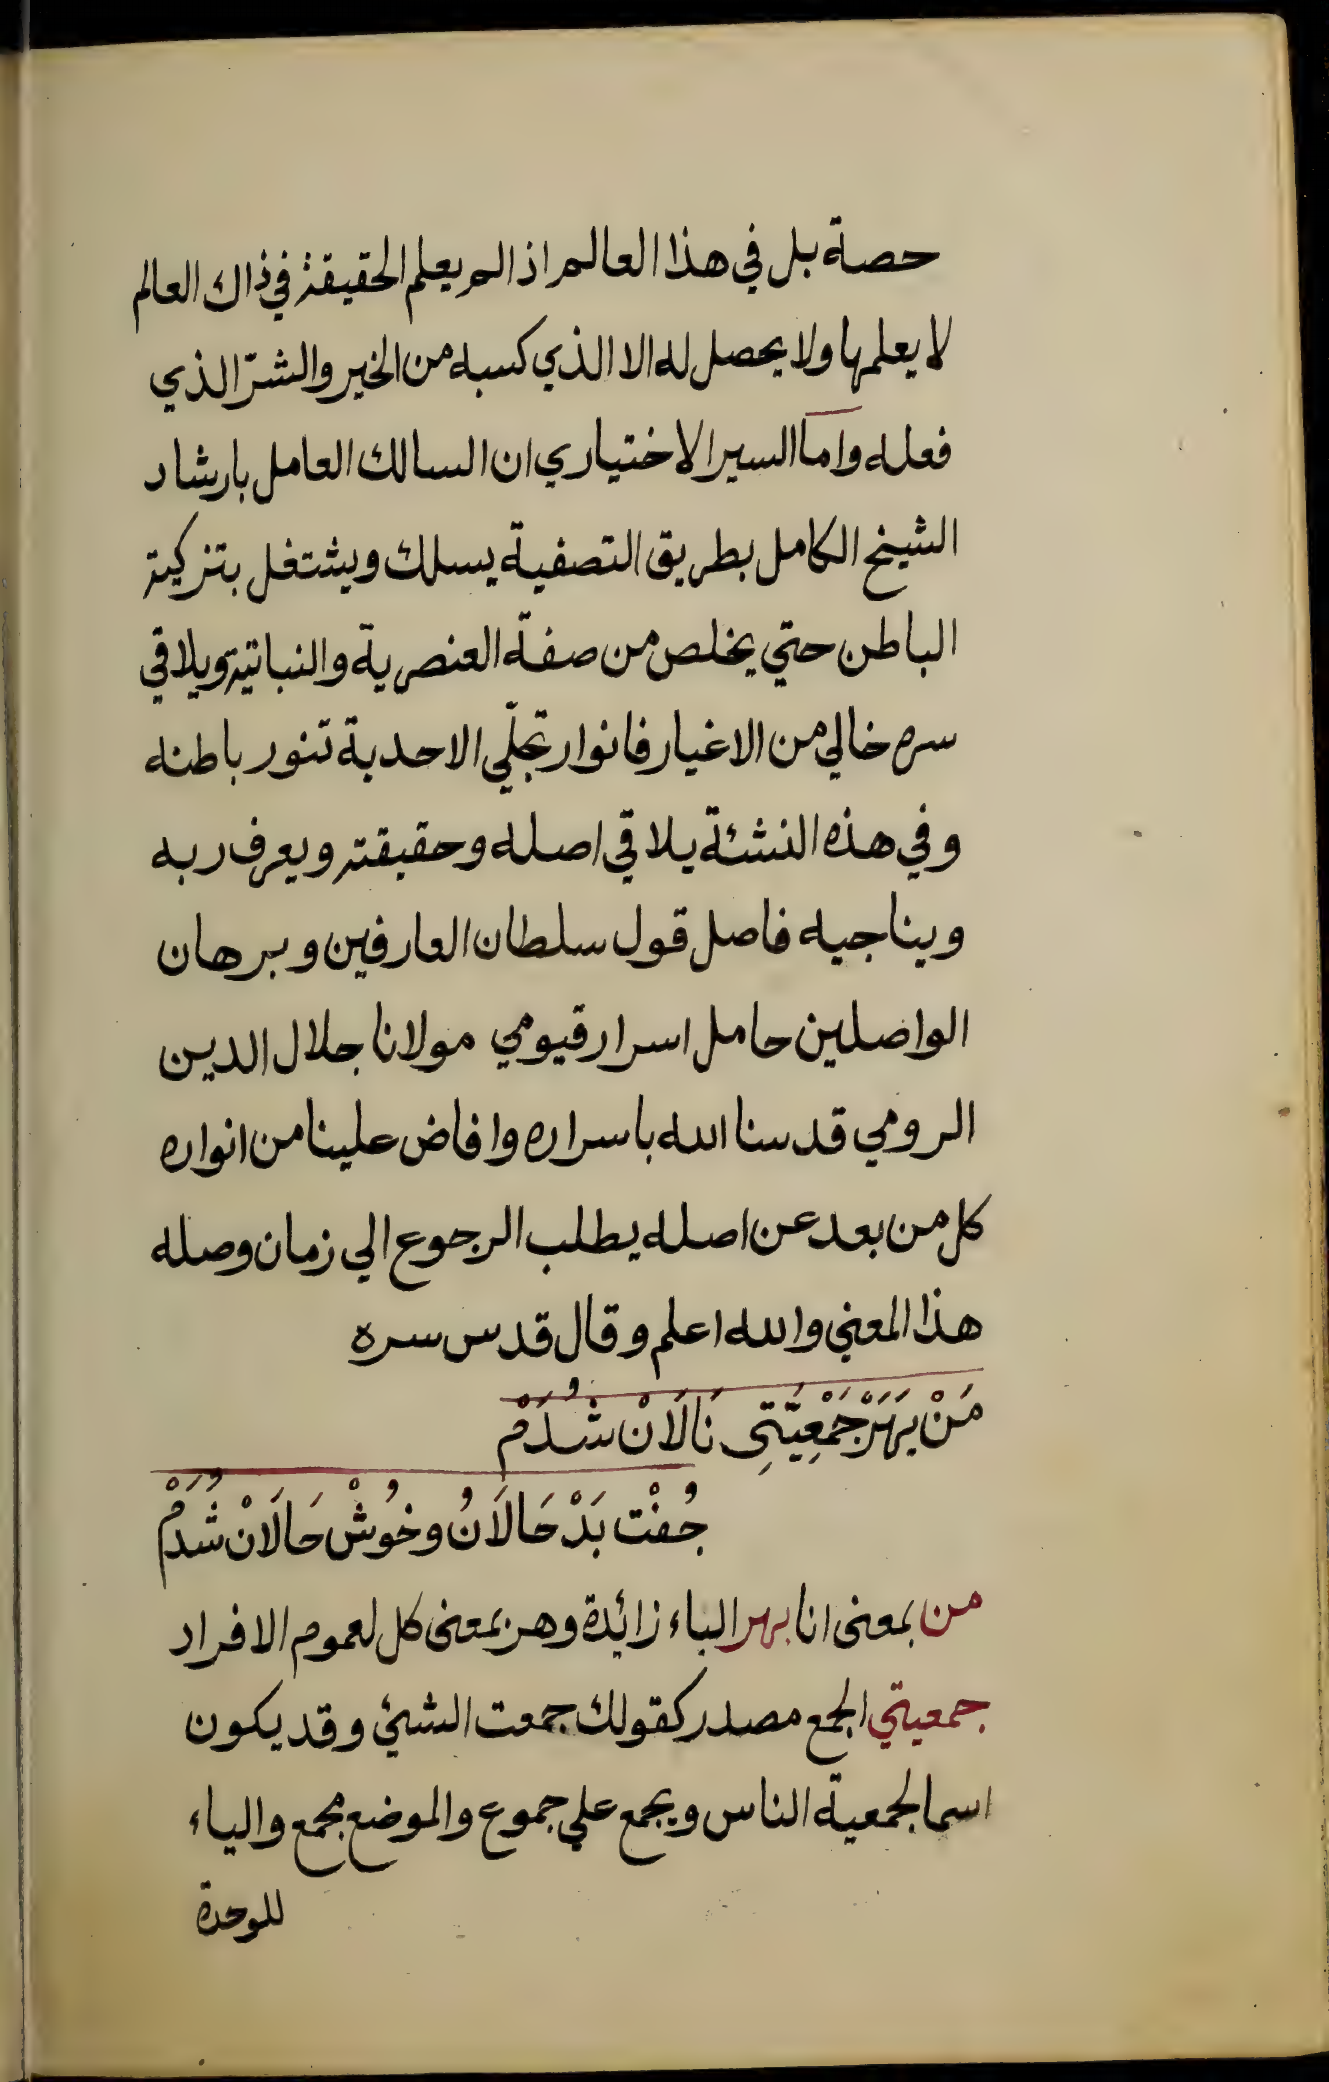 حصة بل في هذا العالم اذ الم يعلم الحقيقة في ذاك العالم
لا يعلمها ولا يحصل له الا الذي كسبه من الخير والشرّ الذي
فعله واما السير الاختياري ان السالك العامل بارشاد
الشيخ الكامل بطريق التصفية يسلك ويشتغل بتزكية
الباطن حتي يخلص من صفة العنصرية والنباتية ويلاقي
سره خالي من الاغيار فانوار تجلّي الاحدية تنور باطنه
وفي هذه النشئة يلاقي اصله وحقيقته ويعرف ربه
ويناجيه فاصل قول سلطان العارفين وبرهان
الواصلين حامل اسرار قيومي مولانا جلال الدين
الرومي قدسنا الله باسراره وافاض علينا من انواره
كل من بعد عن اصله يطلب الرجوع الي زمان وصله
هذا المعني والله اعلم وقال قدس سره
مَنْ بَهَرْ جَمْعِيَّتِى نَالَانْ شُدَمْ
جُفْت بَدْ حَالَانُ وخُوشْ حَالَانْ شُدَمْ
من بمعنى انا بهر الباء زائدة وهر بمعنى كل لعموم الافراد
جمعيتي الجمع مصدر كقولك جمعت الشئ وقد يكون
اسما لجمعية الناس ويجمع علي جموع والموضع مجمع والياء
للوحدة